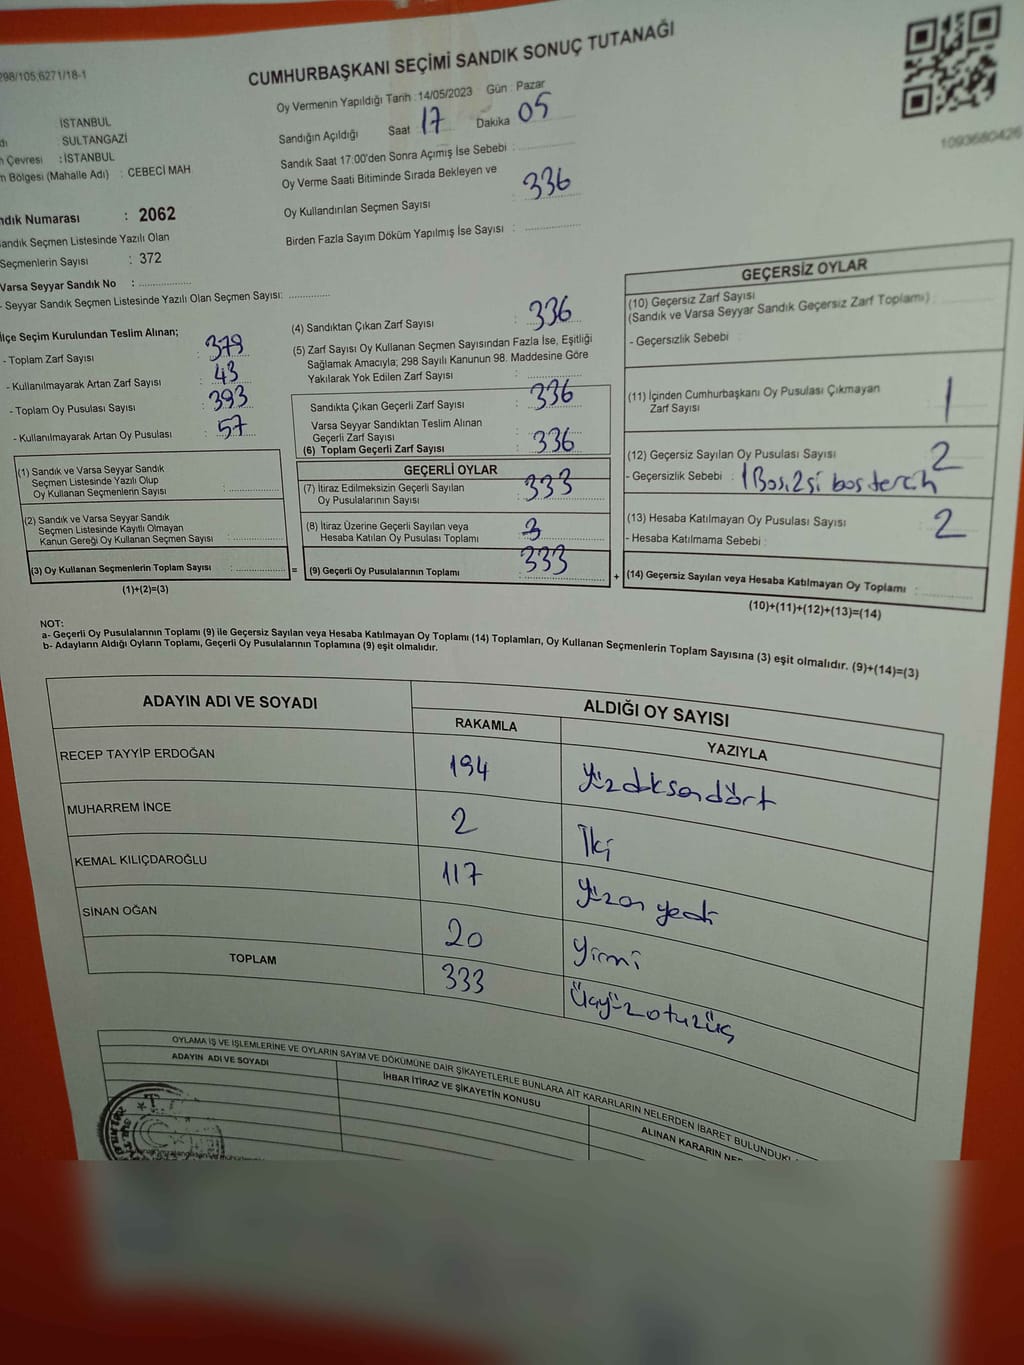 298/105,6271/18-1
CUMHURBAŞKANI SEÇİMİ SANDIK SONUÇ TUTANAĞI
1093680426
İSTANBUL
: SULTANGAZİ
Çevresi : İSTANBUL
Bölgesi (Mahalle Adı) : CEBECİ MAH.
Oy Vermenin Yapıldığı Tarih : 14/05/2023 Gün : Pazar
Sandığın Açıldığı Saat 17 Dakika 05
Sandık Saat 17:00'den Sonra Açımış İse Sebebi :
Oy Verme Saati Bitiminde Sırada Bekleyen ve
Oy Kullandırılan Seçmen Sayısı : 336
Birden Fazla Sayım Döküm Yapılmış İse Sayısı :
Numarası : 2062
Sandık Seçmen Listesinde Yazılı Olan
Seçmenlerin Sayısı : 372
Varsa Seyyar Sandık No :
- Seyyar Sandık Seçmen Listesinde Yazılı Olan Seçmen Sayısı:
İlçe Seçim Kurulundan Teslim Alınan;
- Toplam Zarf Sayısı : 379
- Kullanılmayarak Artan Zarf Sayısı : 43
- Toplam Oy Pusulası Sayısı : 393
- Kullanılmayarak Artan Oy Pusulası : 57
(1) Sandık ve Varsa Seyyar Sandık
Seçmen Listesinde Yazılı Olup
Oy Kullanan Seçmenlerin Sayısı :
(2) Sandık ve Varsa Seyyar Sandık
Seçmen Listesinde Kayıtlı Olmayan
Kanun Gereği Oy Kullanan Seçmen Sayısı :
(3) Oy Kullanan Seçmenlerin Toplam Sayısı :
(1)+(2)=(3)
(4) Sandıktan Çıkan Zarf Sayısı : 336
(5) Zarf Sayısı Oy Kullanan Seçmen Sayısından Fazla İse, Eşitliği
Sağlamak Amacıyla; 298 Sayılı Kanunun 98. Maddesine Göre
Yakılarak Yok Edilen Zarf Sayısı :
Sandıkta Çıkan Geçerli Zarf Sayısı : 336
Varsa Seyyar Sandıktan Teslim Alınan
Geçerli Zarf Sayısı :
(6) Toplam Geçerli Zarf Sayısı : 336
GEÇERLİ OYLAR
(7) İtiraz Edilmeksizin Geçerli Sayılan
Oy Pusulalarının Sayısı : 333
(8) İtiraz Üzerine Geçerli Sayılan veya
Hesaba Katılan Oy Pusulası Toplamı : 3
= (9) Geçerli Oy Pusulalarının Toplamı 333 +
GEÇERSİZ OYLAR
(10) Geçersiz Zarf Sayısı
(Sandık ve Varsa Seyyar Sandık Geçersiz Zarf Toplamı) :
- Geçersizlik Sebebi :
(11) İçinden Cumhurbaşkanı Oy Pusulası Çıkmayan
Zarf Sayısı : 1
(12) Geçersiz Sayılan Oy Pusulası Sayısı : 2
- Geçersizlik Sebebi : 1 Boş, 2 si boş tercih
(13) Hesaba Katılmayan Oy Pusulası Sayısı : 2
- Hesaba Katılmama Sebebi :
(14) Geçersiz Sayılan veya Hesaba Katılmayan Oy Toplamı :
(10)+(11)+(12)+(13)=(14)
NOT:
a- Geçerli Oy Pusulalarının Toplamı (9) ile Geçersiz Sayılan veya Hesaba Katılmayan Oy Toplamı (14) Toplamları, Oy Kullanan Seçmenlerin Toplam Sayısına (3) eşit olmalıdır. (9)+(14)=(3)
b- Adayların Aldığı Oyların Toplamı, Geçerli Oy Pusulalarının Toplamına (9) eşit olmalıdır.
ADAYIN ADI VE SOYADI ALDIĞI OY SAYISI
RAKAMLA YAZIYLA
RECEP TAYYİP ERDOĞAN 194 Yüzdoksandört
MUHARREM İNCE 2 İki
KEMAL KILIÇDAROĞLU 117 Yüzon yedi
SİNAN OĞAN 20 Yirmi
TOPLAM 333 Üçyüzotuzüç
OYLAMA İŞ VE İŞLEMLERİNE VE OYLARIN SAYIM VE DÖKÜMÜNE DAİR ŞİKAYETLERLE BUNLARA AİT KARARLARIN NELERDEN İBARET BULUNDUK
ADAYIN ADI VE SOYADI İHBAR İTİRAZ VE ŞİKAYETİN KONUSU ALINAN KARARIN